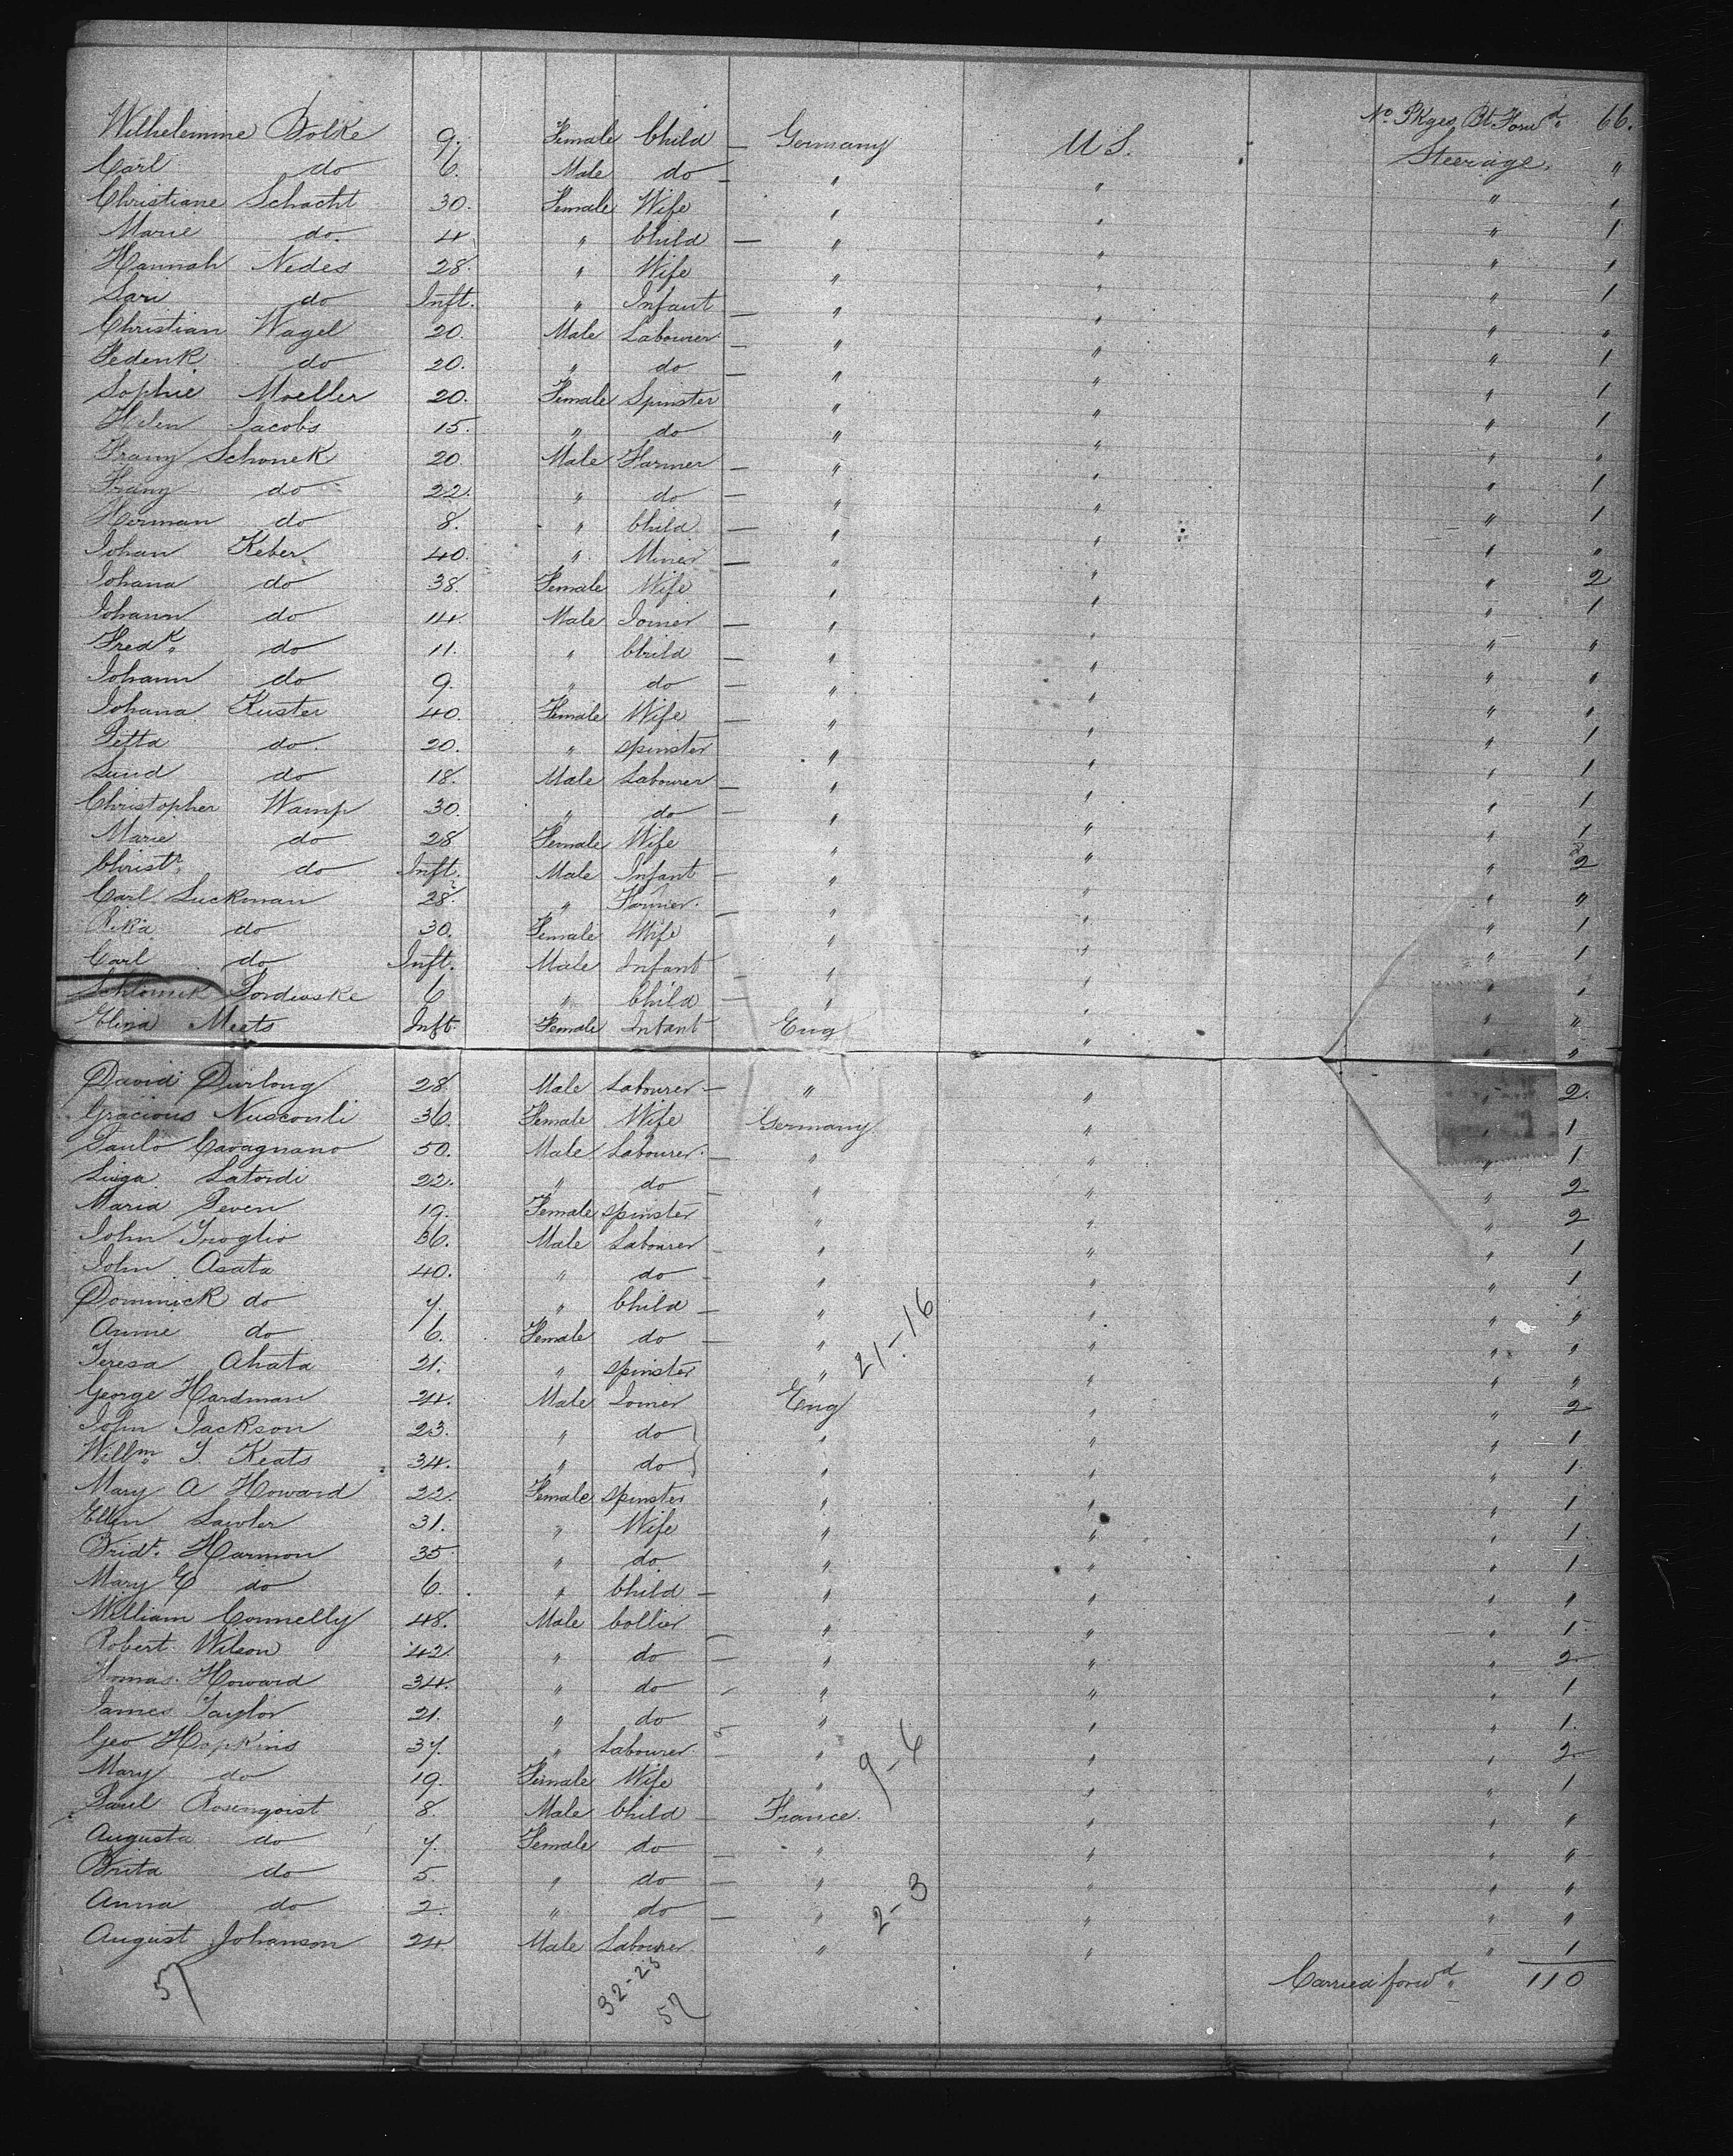 No. Pkges Bt Forwd. 66.
Wilhelemine Bolke 9. Female Child — Germany U S. Steerage. "
Carl do 6. Male do — " " " "
Christiane Schacht 30. Female Wife " " " 1
Marie do. 4 " Child — " " " 1
Hannah Nedes 28. " Wife " " " 1
Sari do Inft. " Infant — " " " "
Christian Wagel 20. Male Labourer — " " " 1
Fedenk do 20. " do — " " " 1
Sophie Moeller 20. Female Spinster " " " 1
Helen Jacobs 15. " do " " " "
Schonek 20 Male Farmer — " " " 1
Franz do 22. " do — " " " 1
Herman do 8. " Child — " " " "
Johan Keber 40. " Miner — " " " 2
Johana do 38. Female Wife " " " 1
Johann do 14. Male Joiner — " " " "
Fredk. do 11. " Child — " " " "
Johann do 9. " do — " " " "
Johana Kuster 40. Female Wife — " " " 1
Petta do. 20. " Spinster " " " 1
Lund do 18. Male Labourer — " " " 1
Christopher Wamp 30. " do — " " " 1
Marie do 28 Female Wife " " " 2
Christr. do Inft. Male Infant — " " " "
Carl Luckman 28. " Farmer. — " " " 1
Rika do 30. Female Wife " " " 1
Carl do Inft. Male Infant — " " " 1
Pordewske 6 " Child — " " " "
Eliza Meets Inft. Female Infant Eng " " "
David Durlong 28 Male Labourer — " " " 2.
Gracious Nusconli 36. Female Wife Germany " " 1
Paulo Cavagnano 50. Male Labourer. — " " " 1
Luiga Latordi 22. " do — " " " 2
Maria Peven 19. Female Spinster " " " 2
John Troglio 36. Male Labourer — " " " 1
John Asata 40. " do — " " " 1
Dominick do 7. " Child — " " " "
Anne do 6. Female do — " " " "
Teresa Ahata 21. " Spinster " 21-16 " " "
George Hardman 24. Male Joiner Eng " " 2
John Jackson 23. " do " " " 1
Willm. T. Keats 34. " do " " " 1
Mary A Howard 22. Female Spinster " " " 1
Ellen Lawler 31. " Wife " " " 1
Bridt. Harmon 35 " do " " " 1
Mary E do 6. " Child — " " " "
William Connelly 48. Male Collier — " " " 1
Robert Wilson 42. " do — " " " 2
Thomas Howard 34. " do — " " " 1
James Taylor 21. " do 5 " " " 1.
Geo Hopkins 37. " Labourer. — " 9-6 " " 2
Mary do 19. Female Wife " " " 1
Paul Rosenqoist 8. Male Child — France. " " "
Augusta do 7. Female do — " " " "
Brita do 5. " do — " " " "
Anna do 2. " do — " 2-3 " " "
August Johanson 24 Male Labourer " " " 1
57 32-25 57 Carried forwd. 110